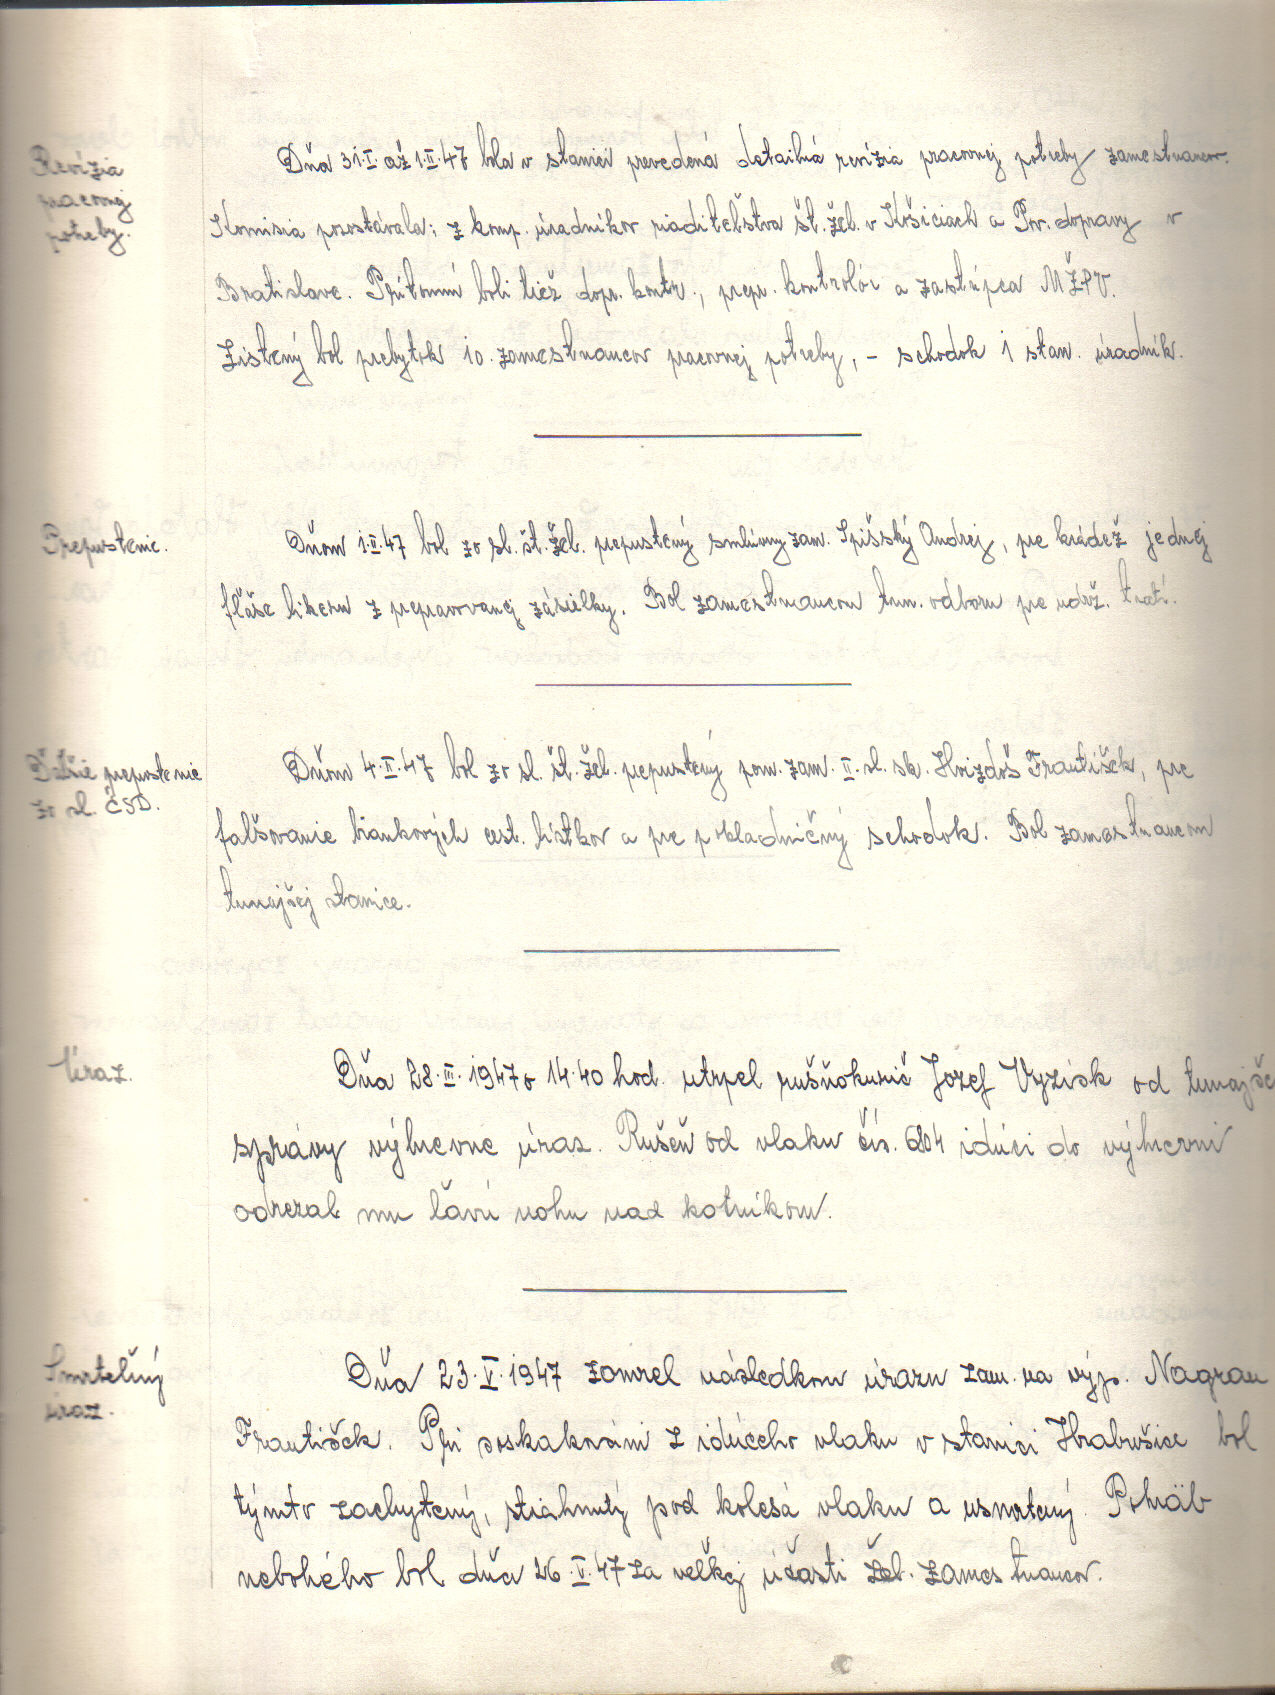 Revízia
pracovnej
potreby.
Dňa 31.I. až 1.II.47 bola v stanici prevedená detailná revízia pracovnej potreby zamestnancov.
Komisia pozostávala; z komp. úradníkov riaditeľstva št. žel. v Košiciach a Pov. dopravy v
Bratislave. Prítomní boli tiež dopr. kontr., prepr. kontrolór a zástupca MŽPV.
Zistený bol prebytok 10. zamestnancov pracovnej potreby, - schodok 1 stan. úradník.
Prepustenie.
Dňom 1.II.47 bol zo sl. št. žel. prepustený smluvný zam. Spišský Andrej, pre krádež jednej
fľaše likeru z prepravovanej zásielky. Bol zamestnancom tun. odboru pre udrž. trati.
Ďalšie prepustenie
zo sl. ČSD.
Dňom 4.II.47 bol zo sl. št. žel. prepustený pom. zam. II. sl. sk. Hvizdoš František, pre
falšovanie blankových cest. lístkov a pre pokladničný schodok. Bol zamestnancom
tunajšej stanice.
Úraz.
Dňa 28.III.1947 o 14.40 hod. utrpel rušňokurič Jozef Vyzisk od tunajše
správy výhrevne úraz. Rušeň od vlaku čís. 804 idúci do výhrevni
odrezal mu ľavú nohu nad kotníkom.
Smrteľný
úraz.
Dňa 23.V.1947 zomrel následkom úrazu zam. na výp. Nagran
František. Pri soskakování z idúceho vlaku v stanici Hrabušice bol
týmto zachytený, stiahnutý pod kolesá vlaku a usmrtený. Pohräb
nebohého bol dňa 26.V.47 za veľkej účasti žel. zamestnancov.